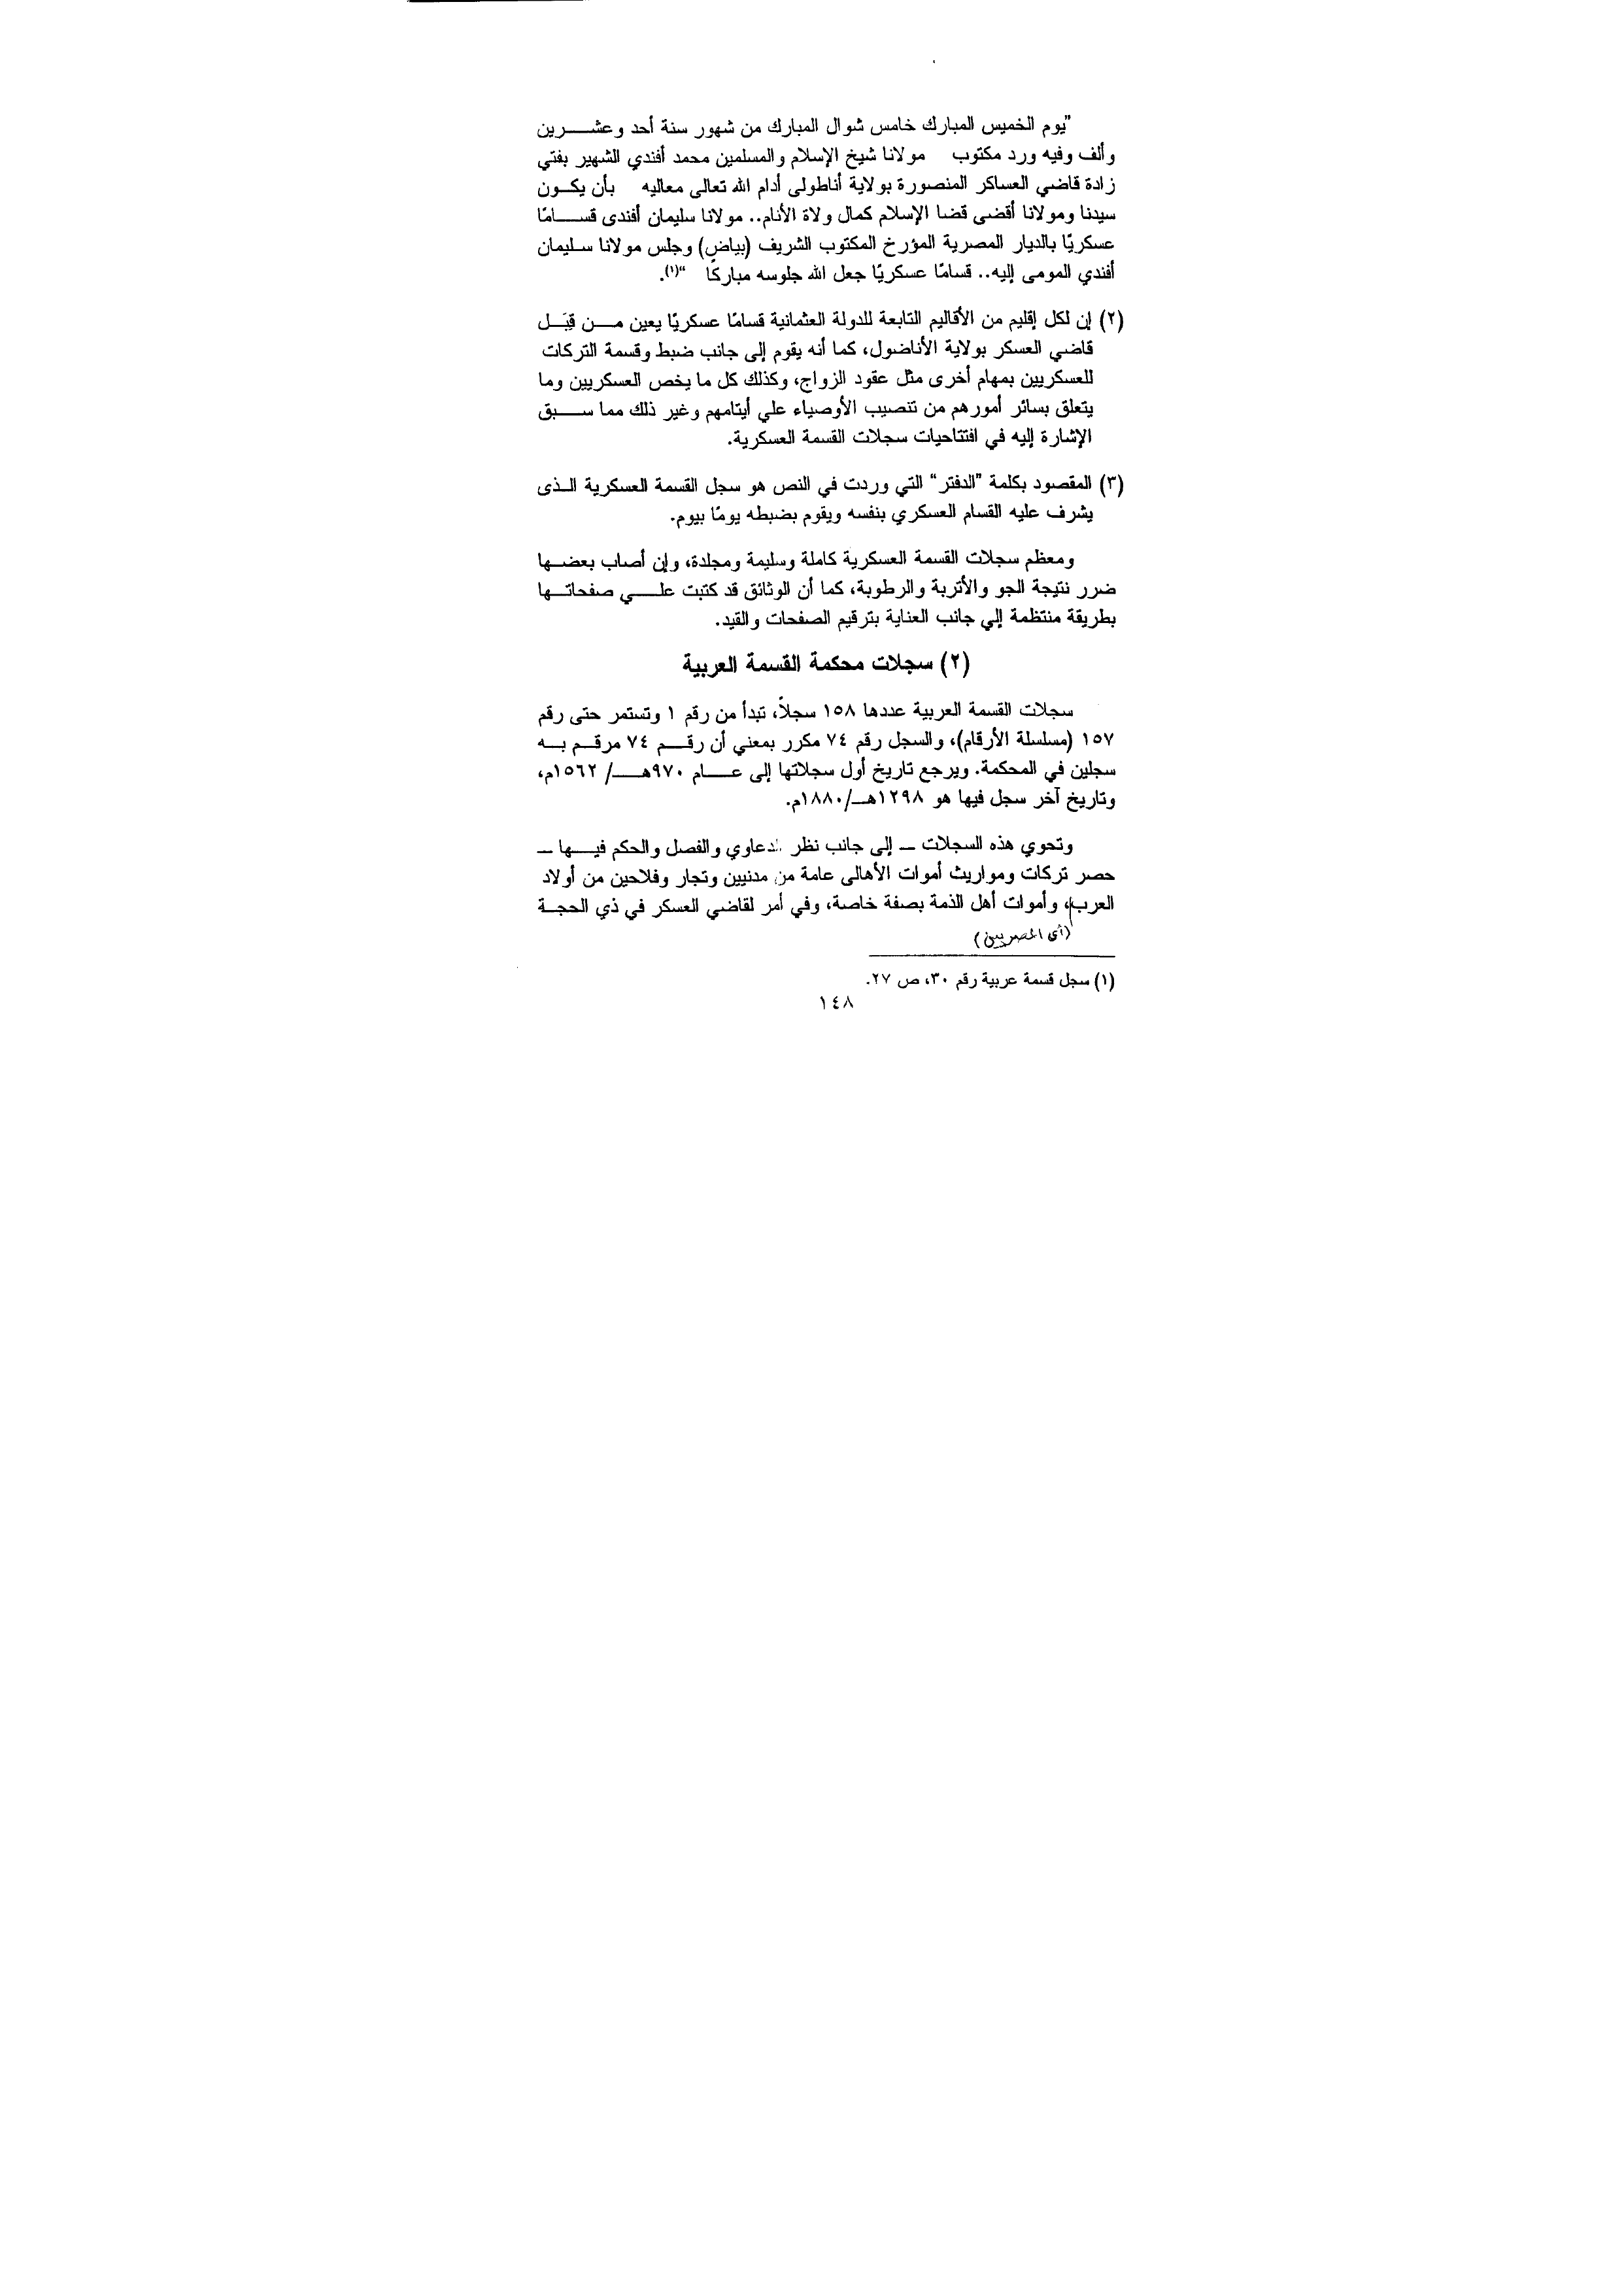 "يوم الخميس المبارك خامس شوال المبارك من شهور سنة أحد وعشرين
وألف وفيه ورد مكتوب مولانا شيخ الإسلام والمسلمين محمد أفندي الشهير بفتي
زادة قاضي العساكر المنصورة بولاية أناطولى أدام الله تعالى معاليه بأن يكون
سيدنا ومولانا أقضى قضا الإسلام كمال ولاة الأنام.. مولانا سليمان أفندى قسامًا
عسكريًا بالديار المصرية المؤرخ المكتوب الشريف (بياض) وجلس مولانا سليمان
أفندي المومى إليه.. قسامًا عسكريًا جعل الله جلوسه مباركًا "(١).
(٢) إن لكل إقليم من الأقاليم التابعة للدولة العثمانية قسامًا عسكريًا يعين من قِبَل
قاضي العسكر بولاية الأناضول، كما أنه يقوم إلى جانب ضبط وقسمة التركات
للعسكريين بمهام أخرى مثل عقود الزواج، وكذلك كل ما يخص العسكريين وما
يتعلق بسائر أمورهم من تنصيب الأوصياء علي أيتامهم وغير ذلك مما سبق
الإشارة إليه في افتتاحيات سجلات القسمة العسكرية.
(٣) المقصود بكلمة "الدفتر" التي وردت في النص هو سجل القسمة العسكرية الذى
يشرف عليه القسام العسكري بنفسه ويقوم بضبطه يومًا بيوم.
ومعظم سجلات القسمة العسكرية كاملة وسليمة ومجلدة، وإن أصاب بعضها
ضرر نتيجة الجو والأتربة والرطوبة، كما أن الوثائق قد كتبت علي صفحاتها
بطريقة منتظمة إلي جانب العناية بترقيم الصفحات والقيد.
(٢) سجلات محكمة القسمة العربية
سجلات القسمة العربية عددها ١٥٨ سجلاً، تبدأ من رقم ١ وتستمر حتى رقم
١٥٧ (مسلسلة الأرقام)، والسجل رقم ٧٤ مكرر بمعني أن رقم ٧٤ مرقم به
سجلين في المحكمة. ويرجع تاريخ أول سجلاتها إلى عام ٩٧٠هـ/ ١٥٦٢م،
وتاريخ آخر سجل فيها هو ١٢٩٨هـ/١٨٨٠م.
وتحوي هذه السجلات – إلى جانب نظر الدعاوي والفصل والحكم فيها –
حصر تركات ومواريث أموات الأهالى عامة من مدنيين وتجار وفلاحين من أولاد
العرب، وأموات أهل الذمة بصفة خاصة، وفي أمر لقاضي العسكر في ذي الحجة
(أي المصريين)
(١) سجل قسمة عربية رقم ٣٠، ص ٢٧.
١٤٨